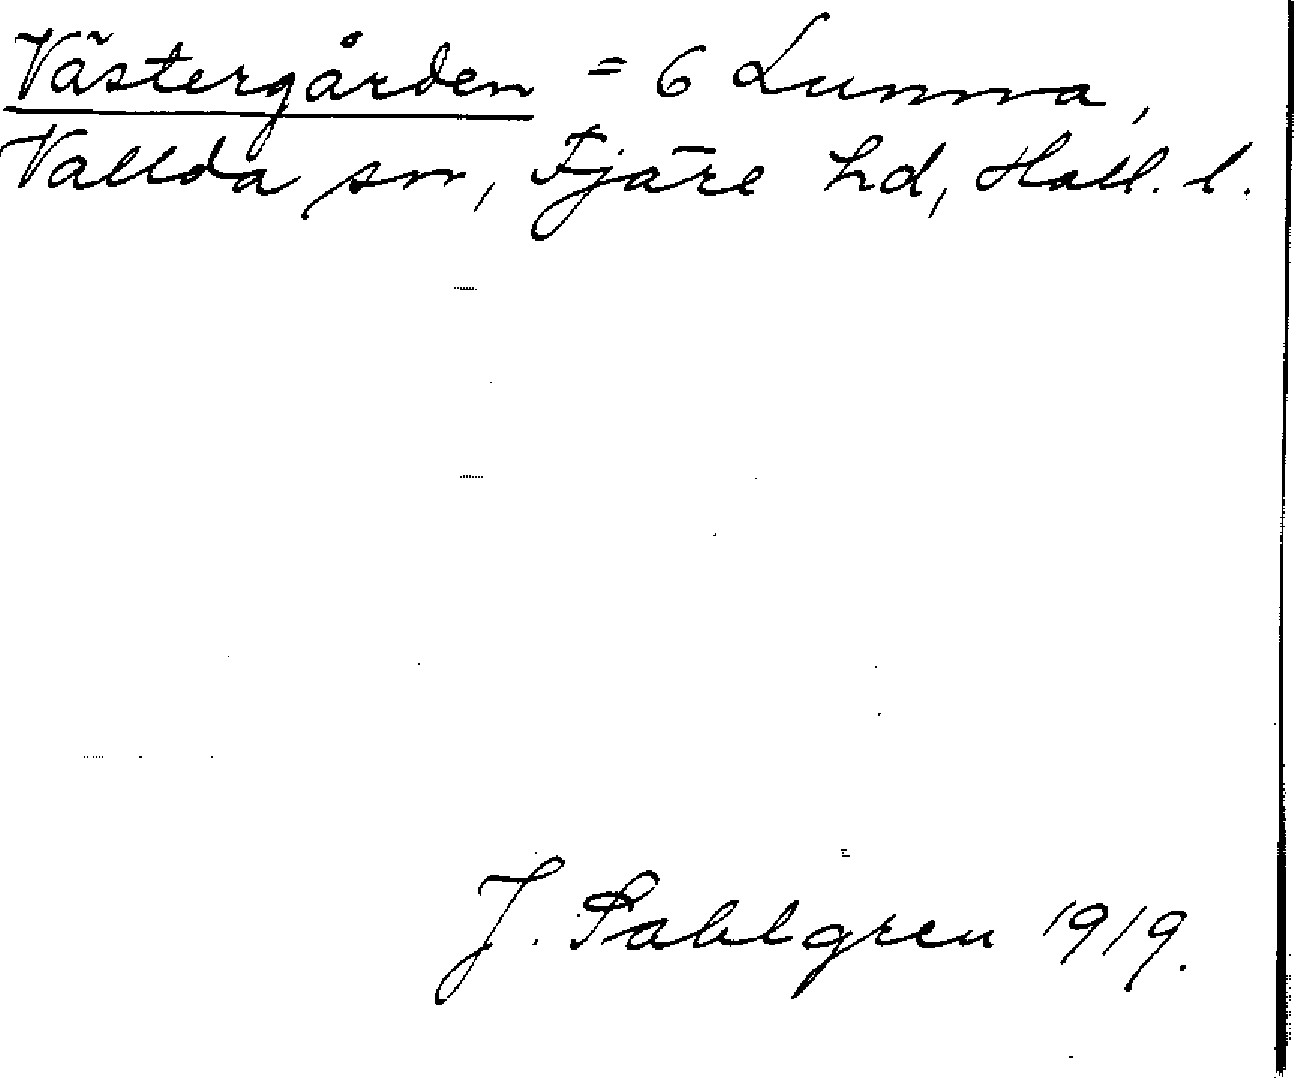 Västergården = 6 Lunna,
Vallda sn, Fjäre hd, Hall. l.
J. Sahlgren 1919.